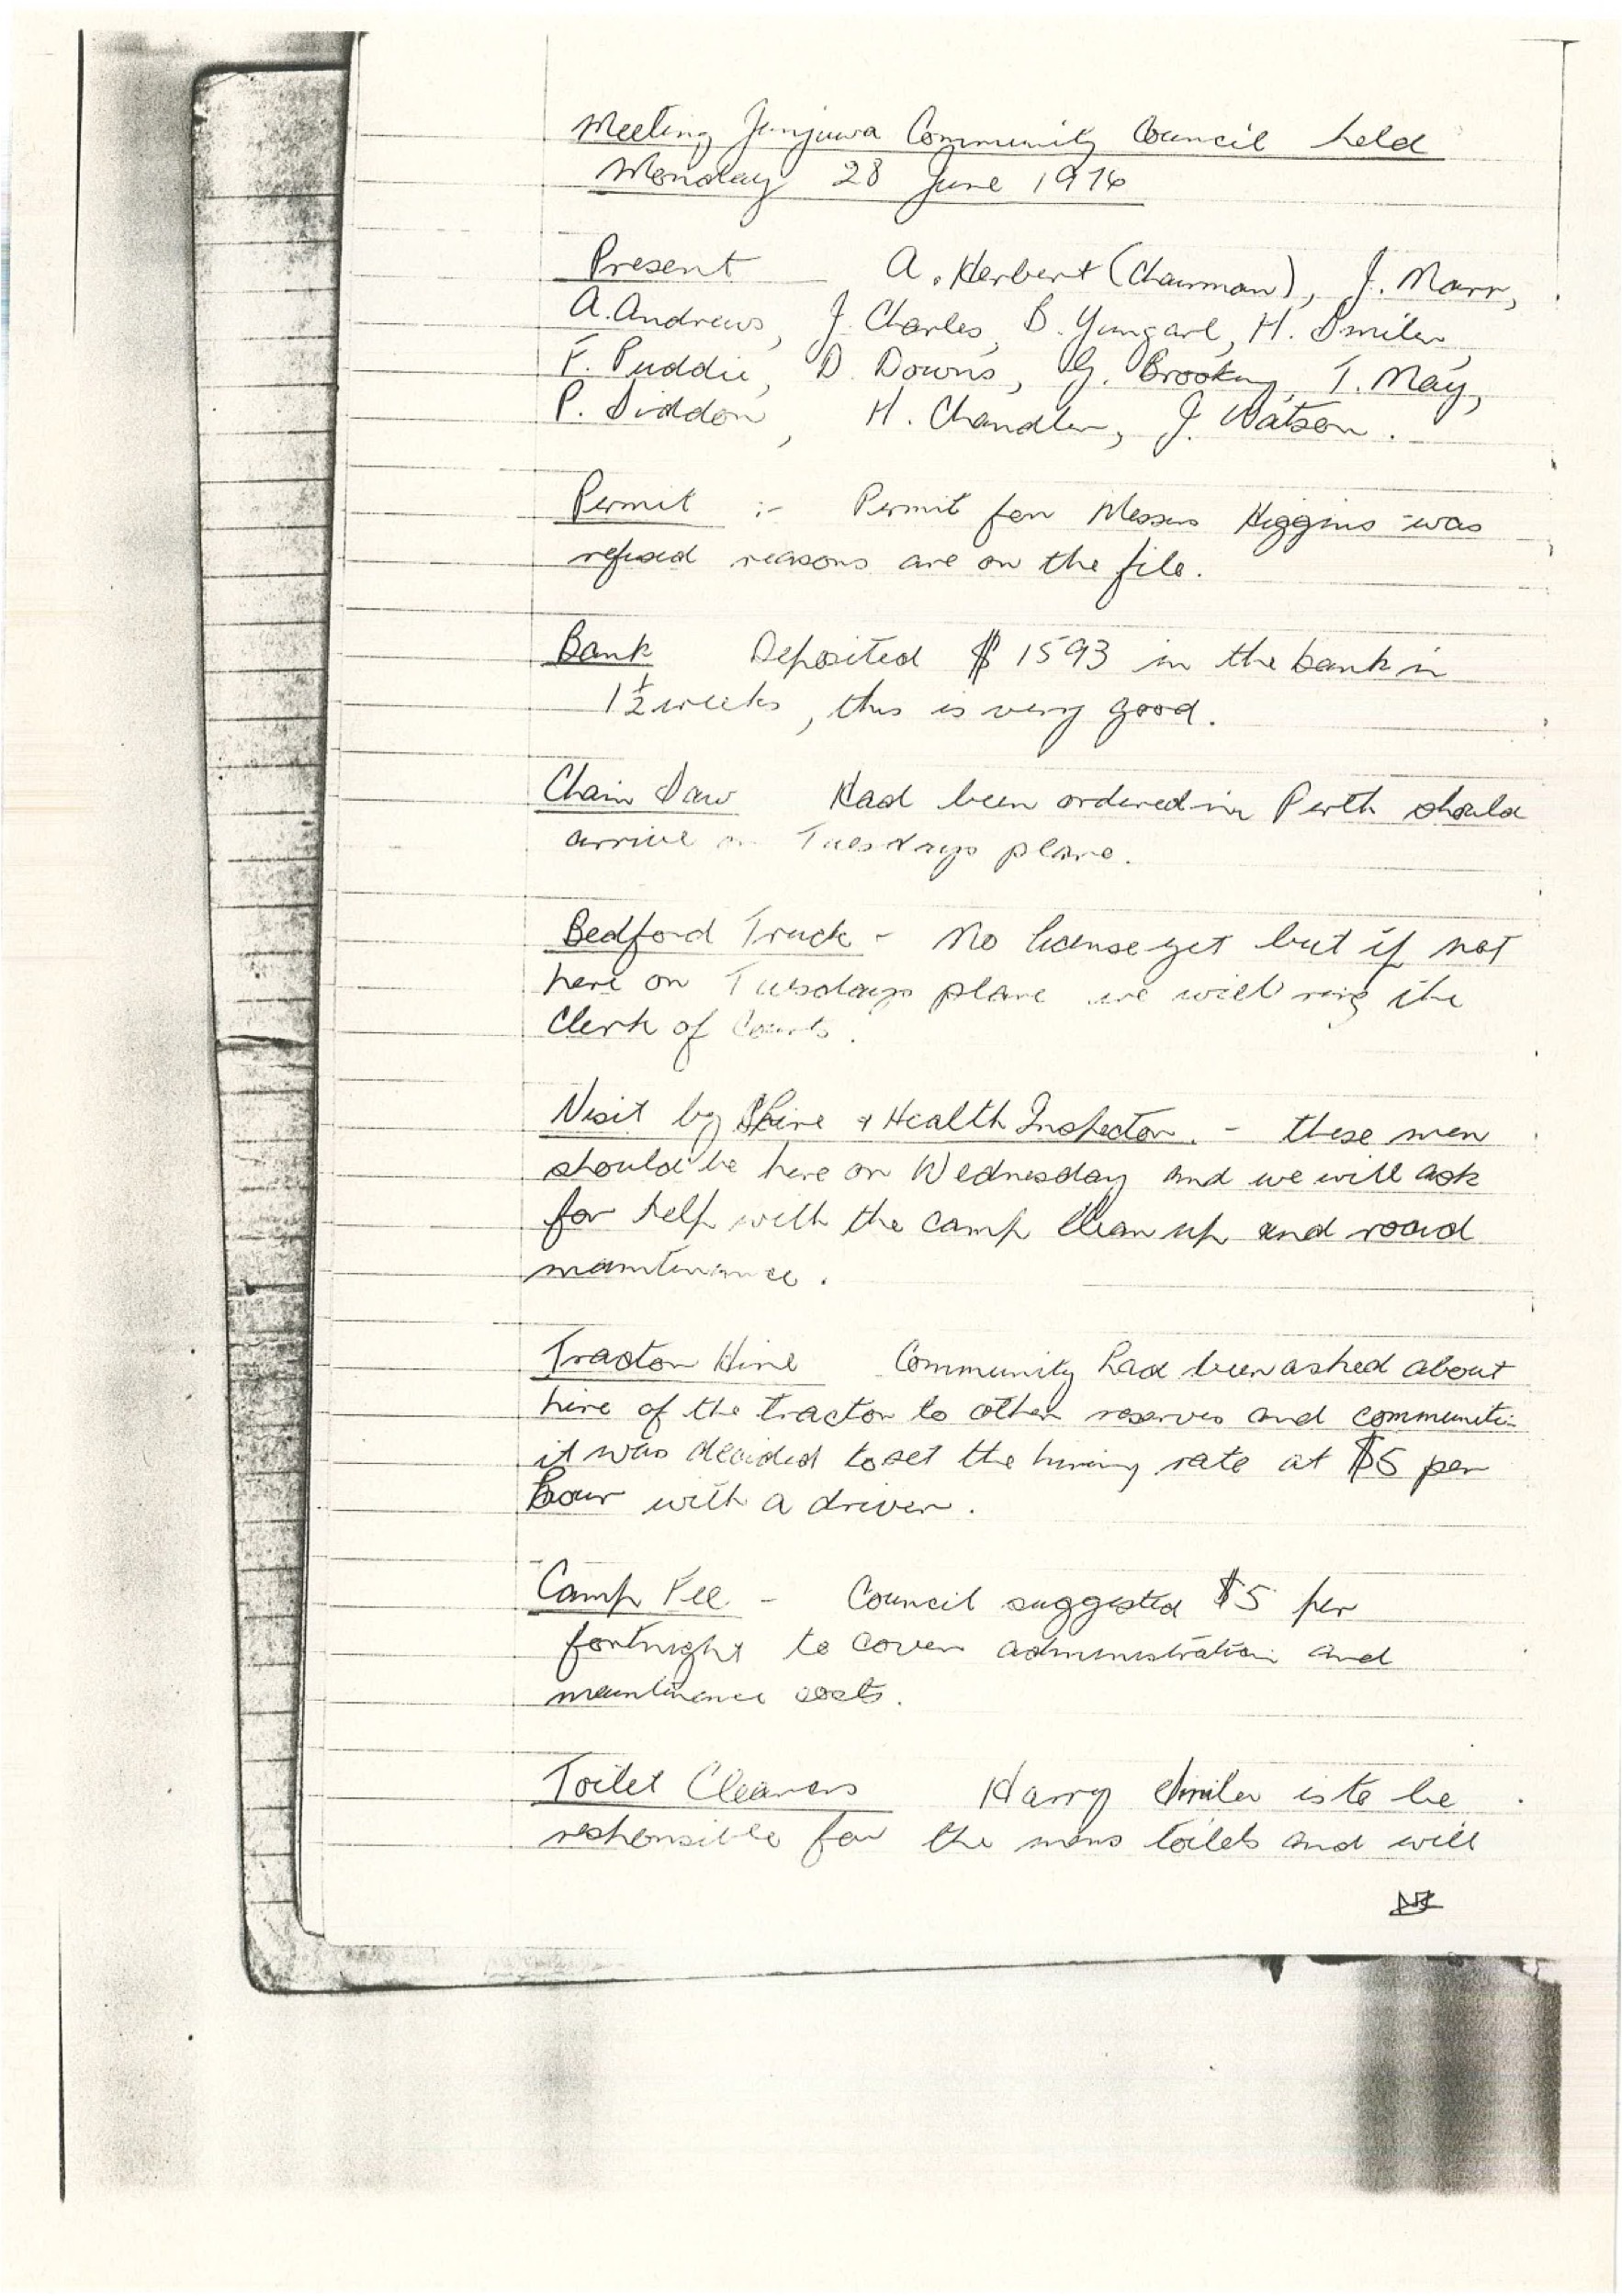 Meeting Junjuwa Community Council held
Monday 28 June 1976
Present A. Herbert (Chairman), J. Marr,
A. Andrews, J. Charles, B. Yungarl, H. Smiler,
F. Puddie, D. Downs, G. Brooking, T. May,
P. Siddon, H. Chandler, J. Watson.
Permit :- Permit for Messrs Higgins was
refused reasons are on the file.
Bank Deposited $1593 in the bank in
1½ weeks, this is very good.
Chain Saw Had been ordered in Perth should
arrive on Tuesdays plane.
Bedford Truck - No license yet but if not
here on Tuesdays plane we will ring the
Clerk of Courts.
Visit by Shire & Health Inspector. - these men
should be here on Wednesday and we will ask
for help with the camp clean up and road
maintenance.
Tractor Hire Community had been asked about
hire of the tractor to other reserves and communiti
it was decided to set the hiring rate at $5 per
hour with a driver.
Camp Fee - Council suggested $5 per
fortnight to cover administration and
maintinance costs.
Toilet Cleaners Harry Smiler is to be
responsible for the mens toilets and will